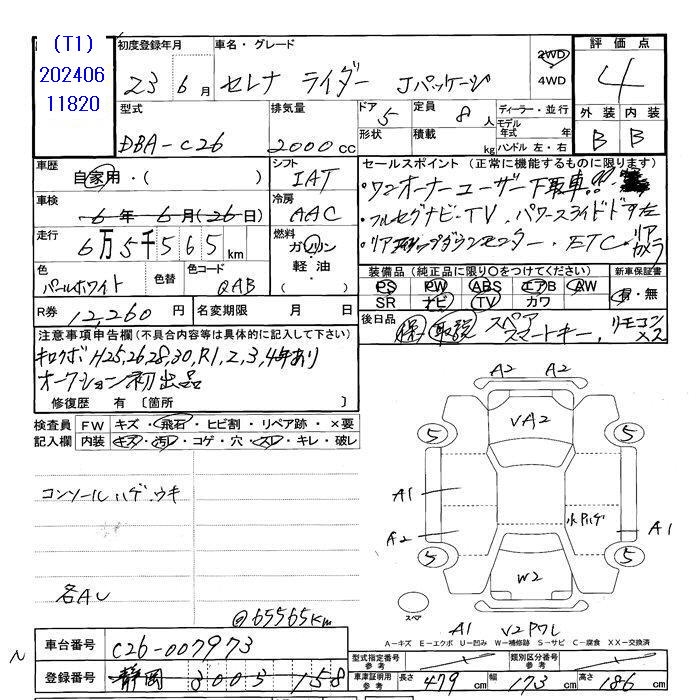 (T1)
202406
11820
初度登録年月
23 6月
車名・グレード
セレナ ライダー Jパッケージ
2WD
4WD
評価点
4
外装 内装
B B
型式
DBA-C26
排気量
2000cc
ドア 5
形状
定員 8人
積載 kg
ディーラー・並行
モデル年式 年
ハンドル 左・右
車歴
自家用・( )
シフト
IAT
車検
6年 6月(26日)
冷房
AAC
走行
6万5千565km
燃料
ガソリン
軽油・
( )
色
パールホワイト
色替
色コード
QAB
R券 12,260円
名変期限 月 日
セールスポイント(正常に機能するものに限ります)
・ワンオーナーユーザー下取車!!
・フルセグナビ・TV、パワースライドドア左
・リアフリップダウンモニター・ETC・リアカメラ
装備品(純正品に限り○をつけてください)
PS PW ABS エアB AW
SR ナビ TV カワ
新車保証書
有・無
後日品
保 取説 スペアスマートキー、リモコンxス
注意事項申告欄(不具合内容等は具体的に記入して下さい)
キロクボ H25,26,28,30,R1,2,3,4年あり
オークション初出品
修復歴 有〔箇所 〕
検査員記入欄
FW キズ・飛石・ヒビ割・リペア跡・×要
内装 キズ・汚レ・コゲ・穴・スレ・キレ・破レ
コンソールハゲ、ウキ
各AU
@65565km
A2 A2
VA2
5 5
A1
A2
水アカハゲ
A1
5 5
W2
スペア
A1 V2Pワレ
A-キズ E-エクボ U-凹み W-補修跡 S-サビ C-腐食 XX-交換済
N
車台番号 C26-007973
登録番号 静岡 300 さ 158
型式指定番号 参考
類別区分番号 参考
車庫証明用 参考 長さ 479cm 幅 173cm 高さ 186cm